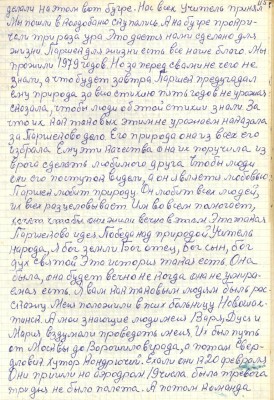 делали на этом вот бугре. Нас всех Учитель принял
Мы пошли в поздование спупались. А на бугре прокри-
чали природа ура. Это дается нами сделано для
жизни. Паршек для жизни есть все наше благо. Мы
прожили 1979 годов. Но за перед свами не чего не
знали, а что будет завтра. Паршек предугадал
ему природа за выю стихию пять годов не урожая
сказала, чтобы люди об этой стихии знали. За
что их нам таковых этим не урожаем наказала,
за Паршеково дело. Его природа одна из всех его
избрала. Ему эти качества она их поручила из
врага сделать любимого друга, чтобы люди
они его поступок видели, а он являете любовью
Паршек любит природу. Он любит всех людей,
их всех разцеловывает. Им во всем помогает,
хочет чтобы они жили вечно в том. Это такая
Паршекова идея. Победа над природой Учителя
народа, а бог земли. Бог отец, Бог сын, Бог
дух святой. Это история такая есть. Она
была, она будет вечно не когда она не умира-
емая есть. Я вам как таковым людям быль рос
скажу. Меня положили в псих больницу Новошах-
тинск. А мои знающие люди меня Варя, Дуся и
Мария вздумали проведать меня. Их был путь
от Москвы до Ворошиловграда, а потом Свер-
дловск Хутор Кондрючий. Ехали они 20 февраля
Они пришли на аэродром 19 числа была тревога
три дня не было полета. А потом команда